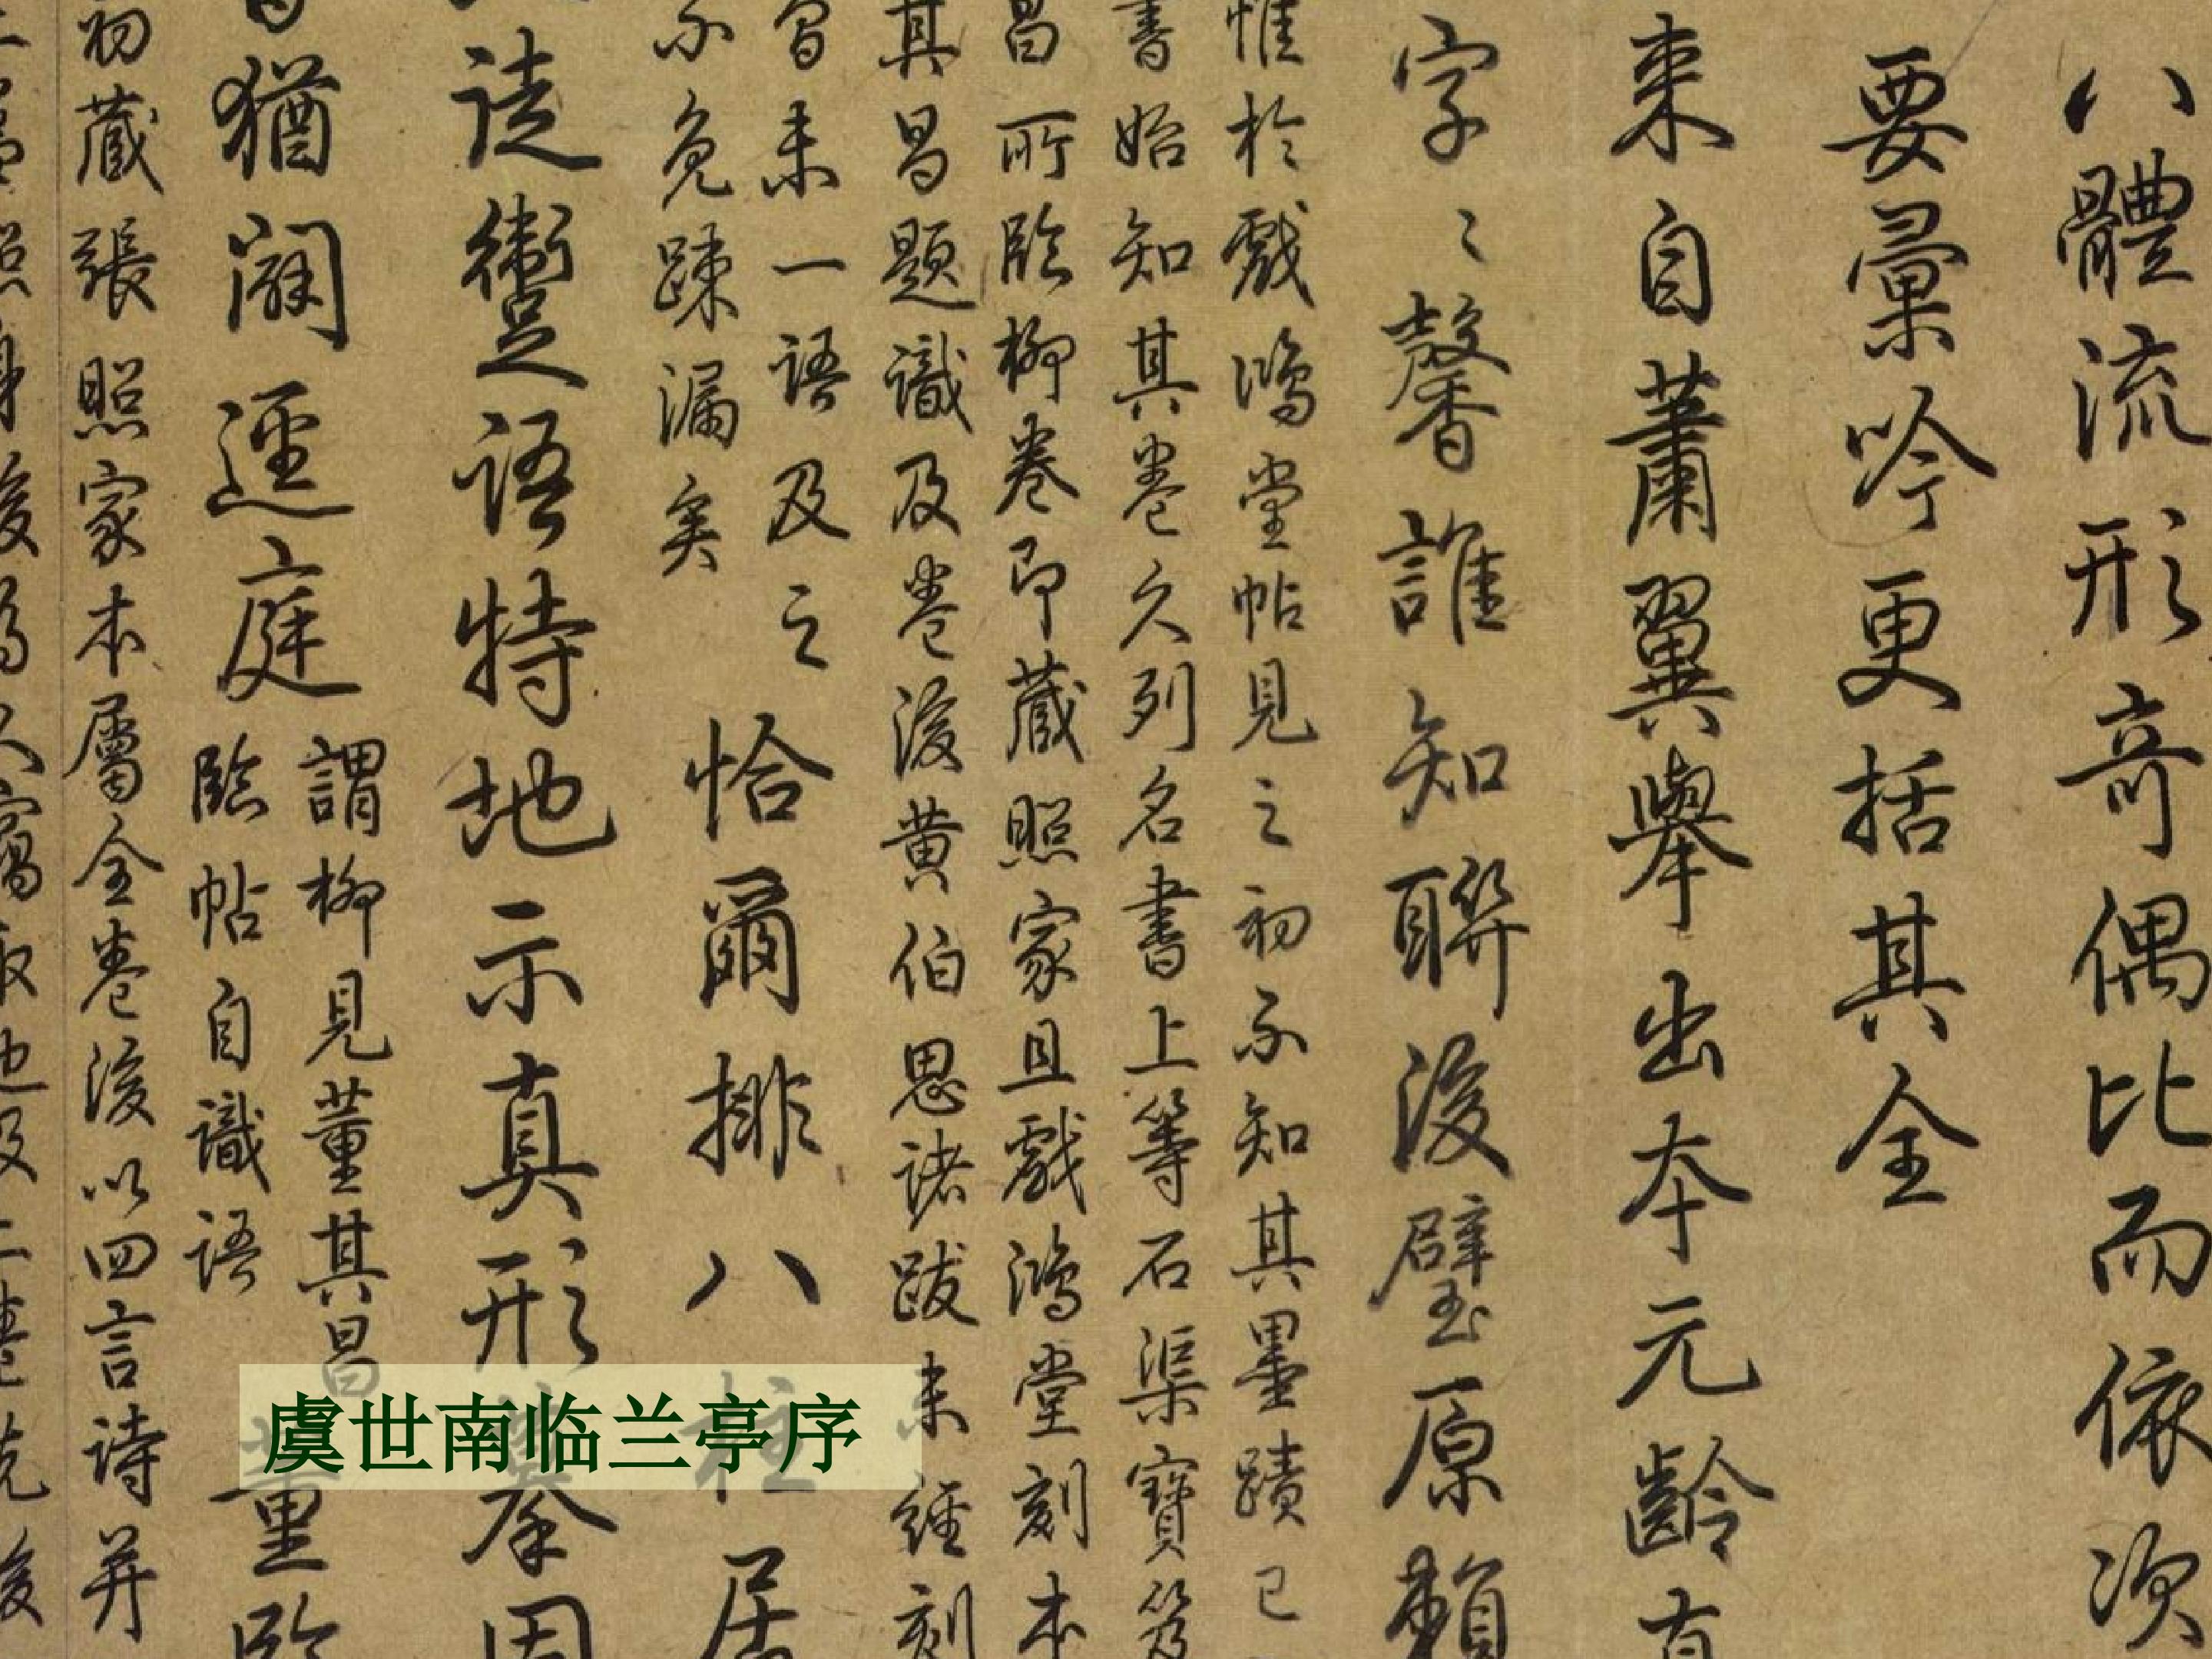 八體流形奇偶比而依次
要彙吟更括其全
來自蕭翼舉出本元齡有
字〻馨誰知聯後璧原類
惟於戲鴻堂帖見之初不知其墨蹟已
書始知其卷久列名書上等石渠寶笈
昌所臨柳卷即藏照家且戲鴻堂刻本
其昌題識及卷後黃伯思諸跋未經刻
曾未一語及之
不免疎漏矣
恰爾排八柱居
徒躗語特地示真形
摹因
猶闊逕庭
謂柳見董其昌
臨帖自識語
董臨
初藏張照家本屬全卷後以四言詩并
虞世南临兰亭序